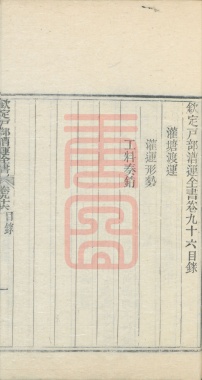 欽定戶部漕運全書卷九十六目錄
灌塘渡運
灌運形勢
工料奏銷
欽定戶部漕運全書
卷九十六目錄
一